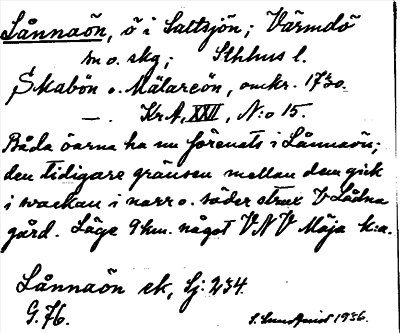 Lånnaön, ö i Saltsjön; Värmdö
sn o. skg; Sthlms l.
Skabön o. Mälareön, omkr. 1730.
— . KrA, XXVI, N:o 15.
Båda öarna ha nu förenats i Lånnaön;
den tidigare gränsen mellan dem gick
i svackan i norr o. söder strax V Lådna
gård. Läge 9 km. något VNV Möja k:a.
Lånnaön ek, Gj: 234
G. 76. 1936.